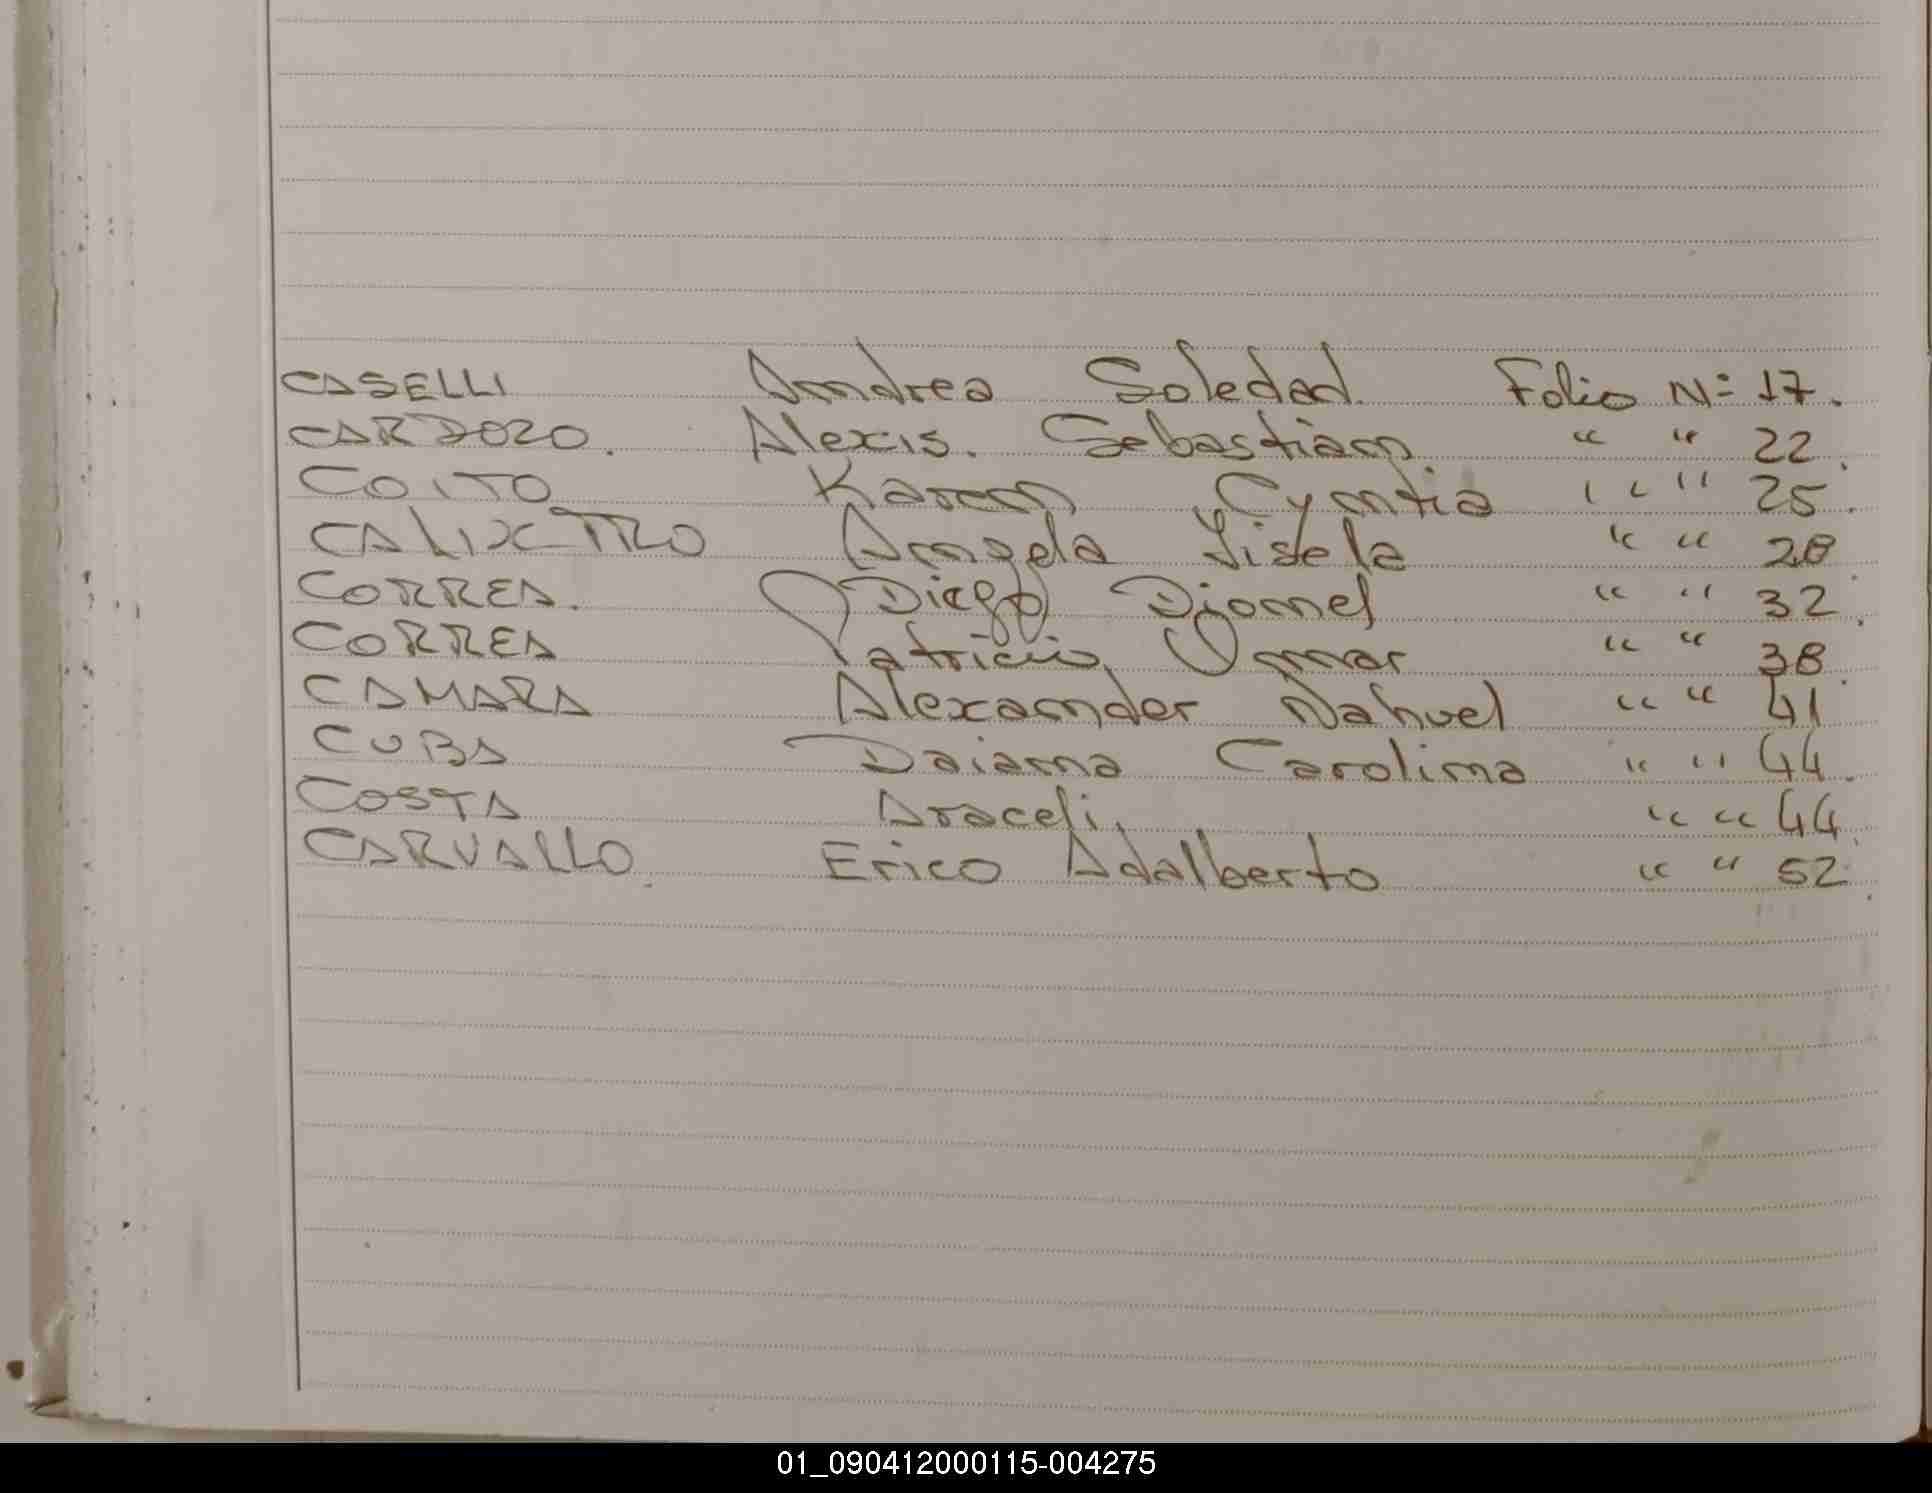 CASELLI Andrea Soledad. Folio Nº 17.
CARDOZO. Alexis. Sebastian " " 22.
COITO Karen Cyntia " " 25.
CALIXTRO Angela Lisela " " 28
CORREA. Diego Dionel " " 32.
CORREA Patricio Omar " " 38.
CAMARA Alexander Nahuel " " 41
CUBA Daiana Carolina " " 44.
COSTA Araceli, " " 44.
CARVALLO. Erico Adalberto " " 52.
01_090412000115-004275